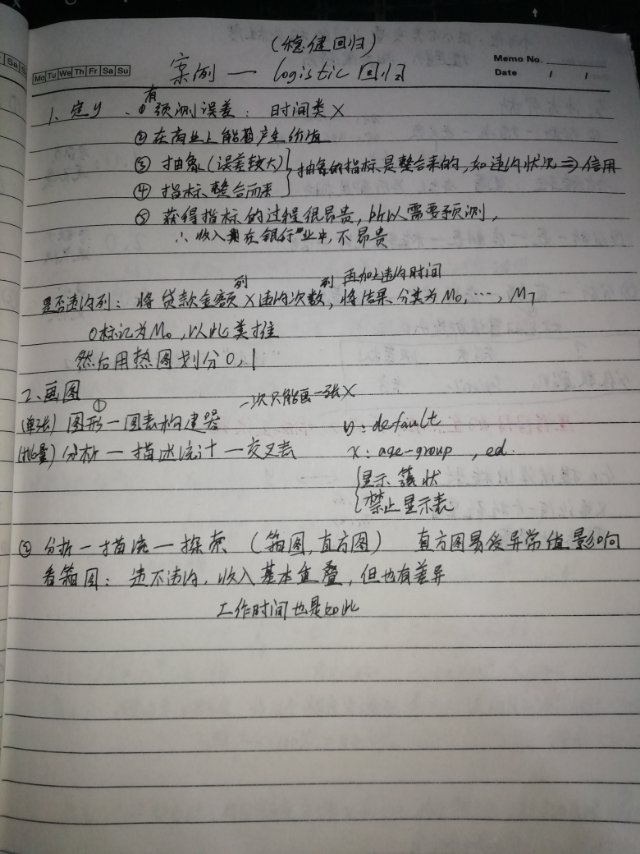 (稳健回归)
案例 — logistic 回归
Memo No.
Mo Tu We Th Fr Sa Su
Date / /
1、定y、①有预测误差：时间类X
②在商业上能够产生价值
③抽象(误差较大)
④指标整合而来
抽象的指标是整合来的,如违约状况⇒信用
⑤获得指标的过程很昂贵,所以需要预测,
∴收入在银行业中,不昂贵
是否违约列：将贷款金额列X违约次数列,再加上违约时间,将结果分类为M0,…,M7
0标记为M0,以此类推
然后用热图划分0,1
2、画图
①
一次只能画一张X
(单张)图形—图表构建器
y：default
(批量)分析—描述统计—交叉表
x：age-group,ed
显示簇状
禁止显示表
②分析—描统—探索(箱图,直方图) 直方图易受异常值影响
看箱图：违不违约,收入基本重叠,但也有差异
工作时间也是如此